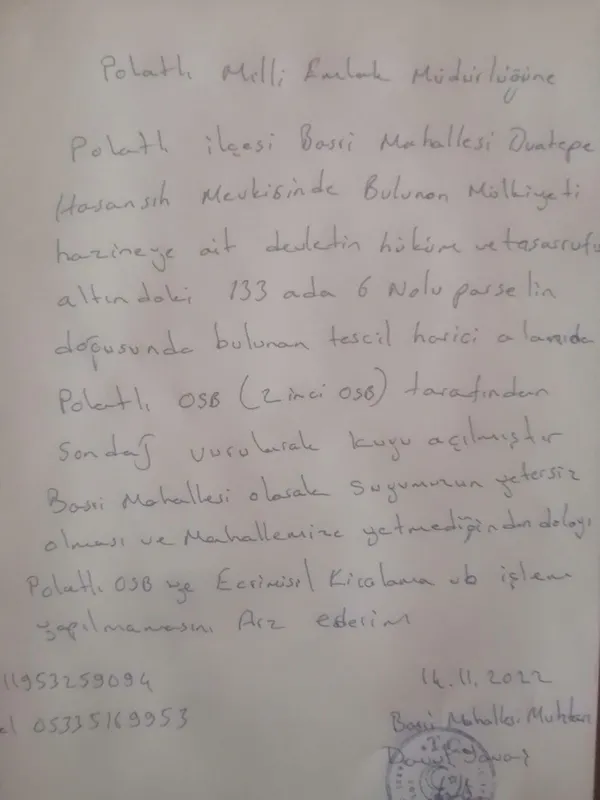 Polatlı Milli Emlak Müdürlüğüne
Polatlı ilçesi Basri Mahallesi Duatepe
Mevkisinde Bulunan Mülkiyeti
hazineye ait devletin hüküm ve tasarrufu
altındaki 133 ada 6 Nolu parselin
doğusunda bulunan tescil harici alanıda
Polatlı OSB (2 inci OSB) tarafından
Sondaj vurularak kuyu açılmıştır
Basri Mahallesi olarak suyumuzun yetersiz
olması ve Mahallemize yetmediğinden dolayı
Polatlı OSB ye Ecrimisil Kiralama vb işlem
yapılmamasını Arz ederim
11953259094
14.11.2022
el 05335169953
Basri Mahallesi Muhtarı